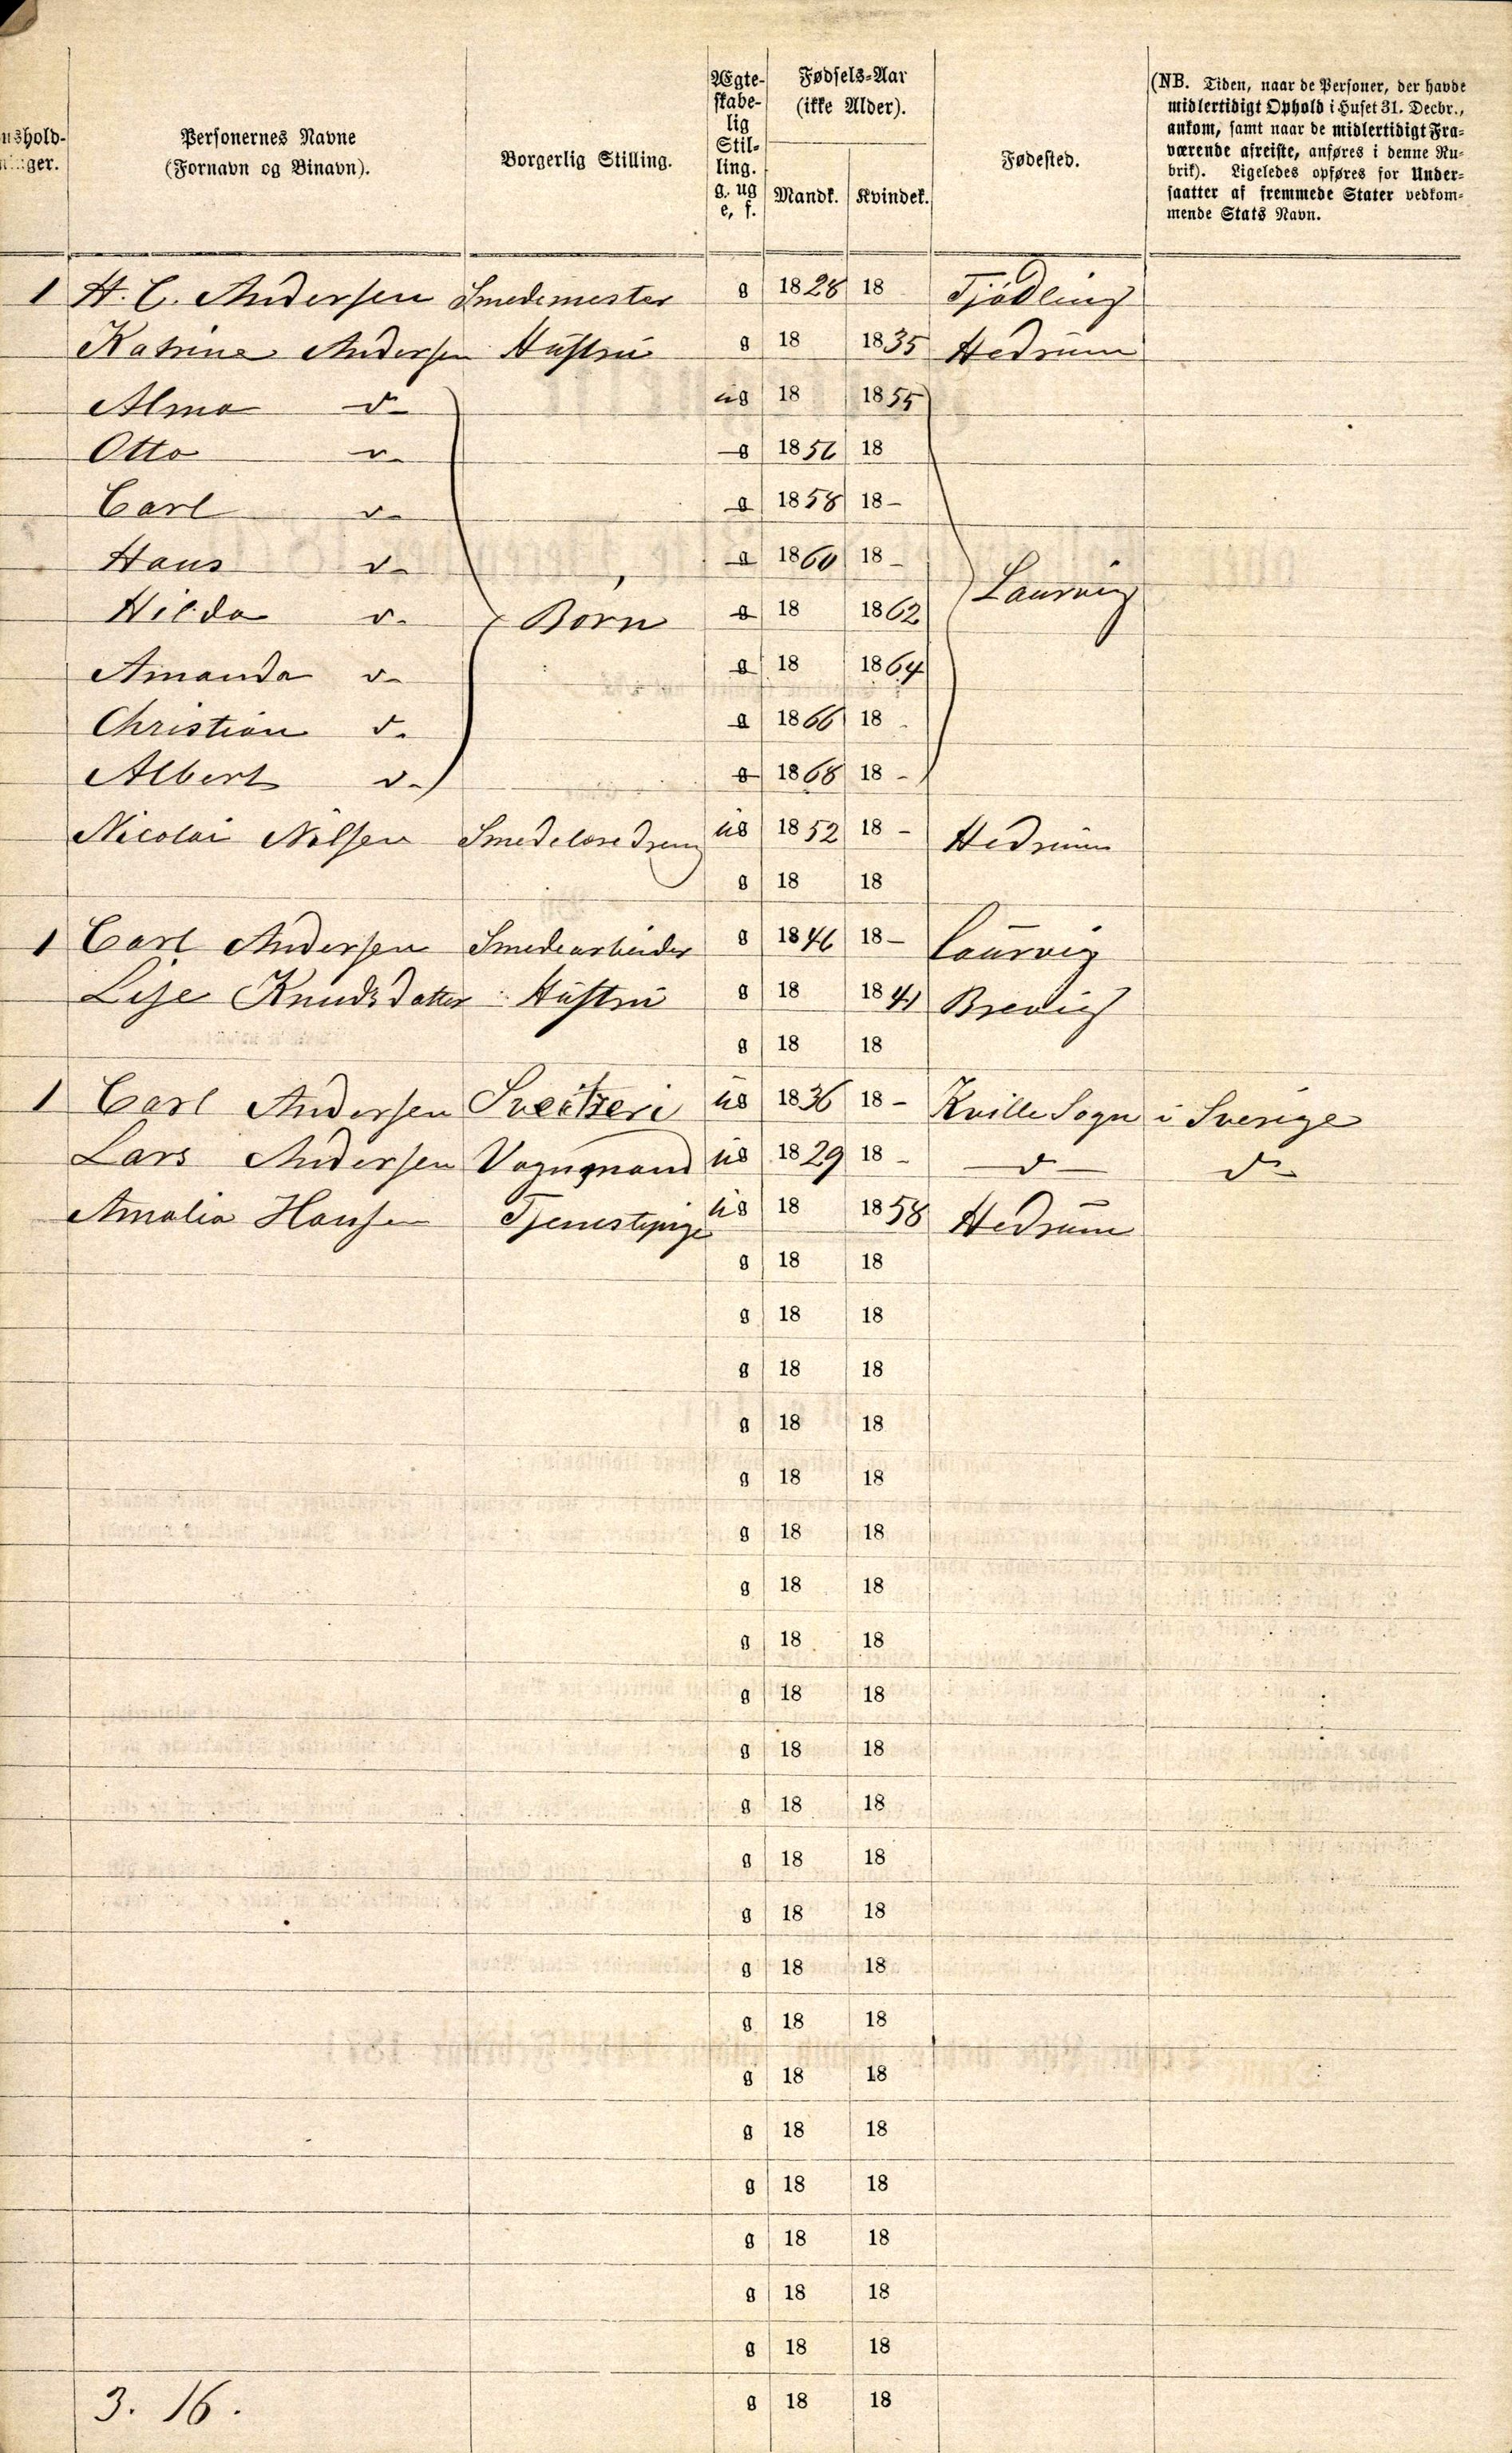 Personernes Navne
(Fornavn og Binavn).
Borgerlig Stilling.
Ægte-
skabe-
lig
Stil-
ling.
g. ug
e, f.
Fødsels-Aar
(ikke Alder).
Mandk. Kvindek.
Fødested.
(NB. Tiden, naar de Personer, der havde
midlertidigt Ophold i Huset 31. Decbr.,
ankom, samt naar de midlertidigt Fra-
værende afreiste, anføres i denne Ru-
brik). Ligeledes opføres for Under-
saatter af fremmede Stater vedkom-
mende Stats Navn.
1 H. C. Andersen Smedemester g 1828 18 Tjødling
Katrine Andersen Hustru g 18 1835 Hedrum
Alma d- ug 18 1855
Otto d- g 1856 18
Carl d- g 1858 18-
Hans d- g 1860 18-
Hilda d- Børn g 18 1862 Laurvig
Amanda d- g 18 1864
Christian d- g 1866 18
Albert d- g 1868 18-
Nicolai Nilsen Smedelæredreng ug 1852 18- Hedrum
g 18 18
1 Carl Andersen Smedearbeider g 1846 18- Laurvig
Lise Knudsdatter Hustru g 18 1841 Brevig
g 18 18
1 Carl Andersen Sveitzeri ug 1836 18- Kville Sogn i Sverige
Lars Andersen Vognmand ug 1829 18- -d- d-
Amalia Hansen Tjenestepige ug 18 1858 Hedrum
g 18 18
g 18 18
g 18 18
g 18 18
g 18 18
g 18 18
g 18 18
g 18 18
g 18 18
g 18 18
g 18 18
g 18 18
g 18 18
g 18 18
g 18 18
g 18 18
g 18 18
g 18 18
g 18 18
g 18 18
g 18 18
3. 16. g 18 18